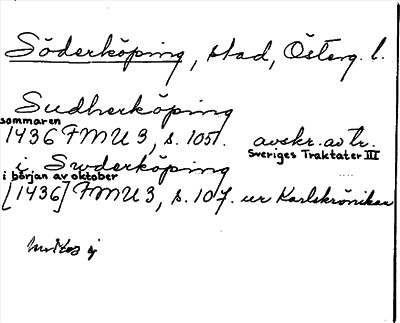 Söderköping, stad, Österg. l.
Sudherköping
sommaren
1436 FMU 3, s. 105. avskr. av tr.
Sveriges Traktater III
i Swderköping
i början av oktober
[1436] FMU 3, s. 107. ur Karlskrönikan